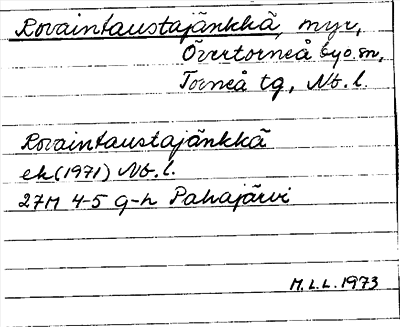 Rovaintaustajänkkä, myr,
Övertorneå byo.sn,
Torneå tg, Nb. l.
Rovaintaustajänkkä
ek(1971) Nb. l.
27M 4-5 g-h Pahajärvi
M.L.L. 1973